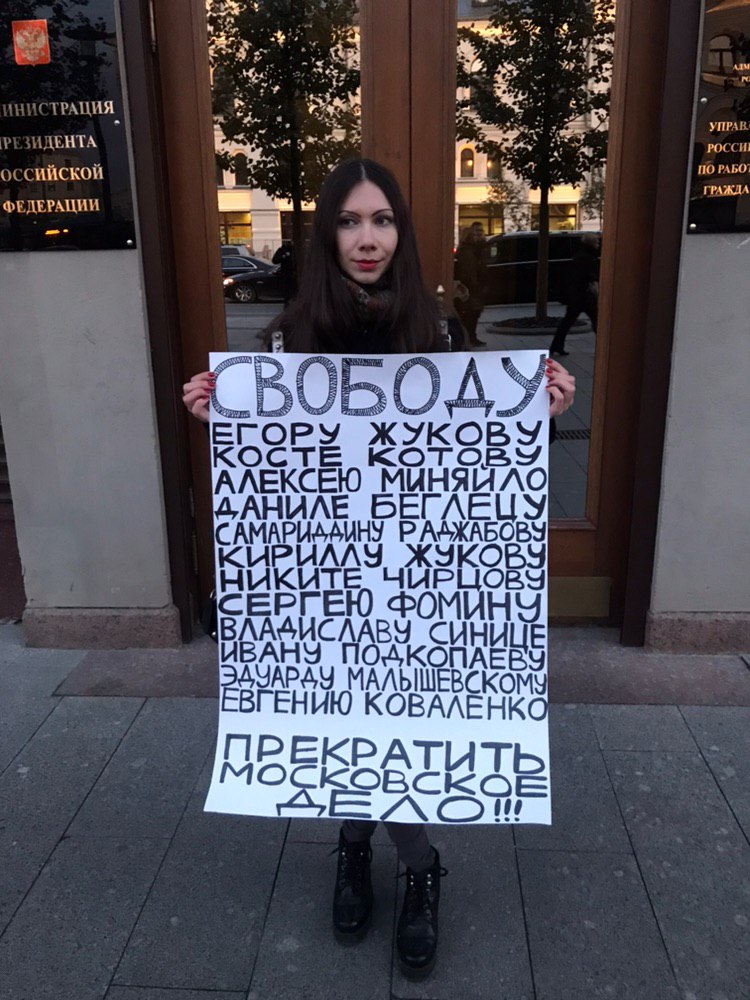 ПРЕЗИДЕНТА
РОССИЙСКОЙ
ФЕДЕРАЦИИ
РОССИ
ПО РАБО
ГРАЖДА
СВОБОДУ
ЕГОРУ ЖУКОВУ
КОСТЕ КОТОВУ
АЛЕКСЕЮ МИНЯЙЛО
ДАНИЛЕ БЕГЛЕЦУ
САМАРИДДИНУ РАДЖАБОВУ
КИРИЛЛУ ЖУКОВУ
НИКИТЕ ЧИРЦОВУ
СЕРГЕЮ ФОМИНУ
ВЛАДИСЛАВУ СИНИЦЕ
ИВАНУ ПОДКОПАЕВУ
ЭДУАРДУ МАЛЫШЕВСКОМУ
ЕВГЕНИЮ КОВАЛЕНКО
ПРЕКРАТИТЬ
МОСКОВСКОЕ
ДЕЛО!!!